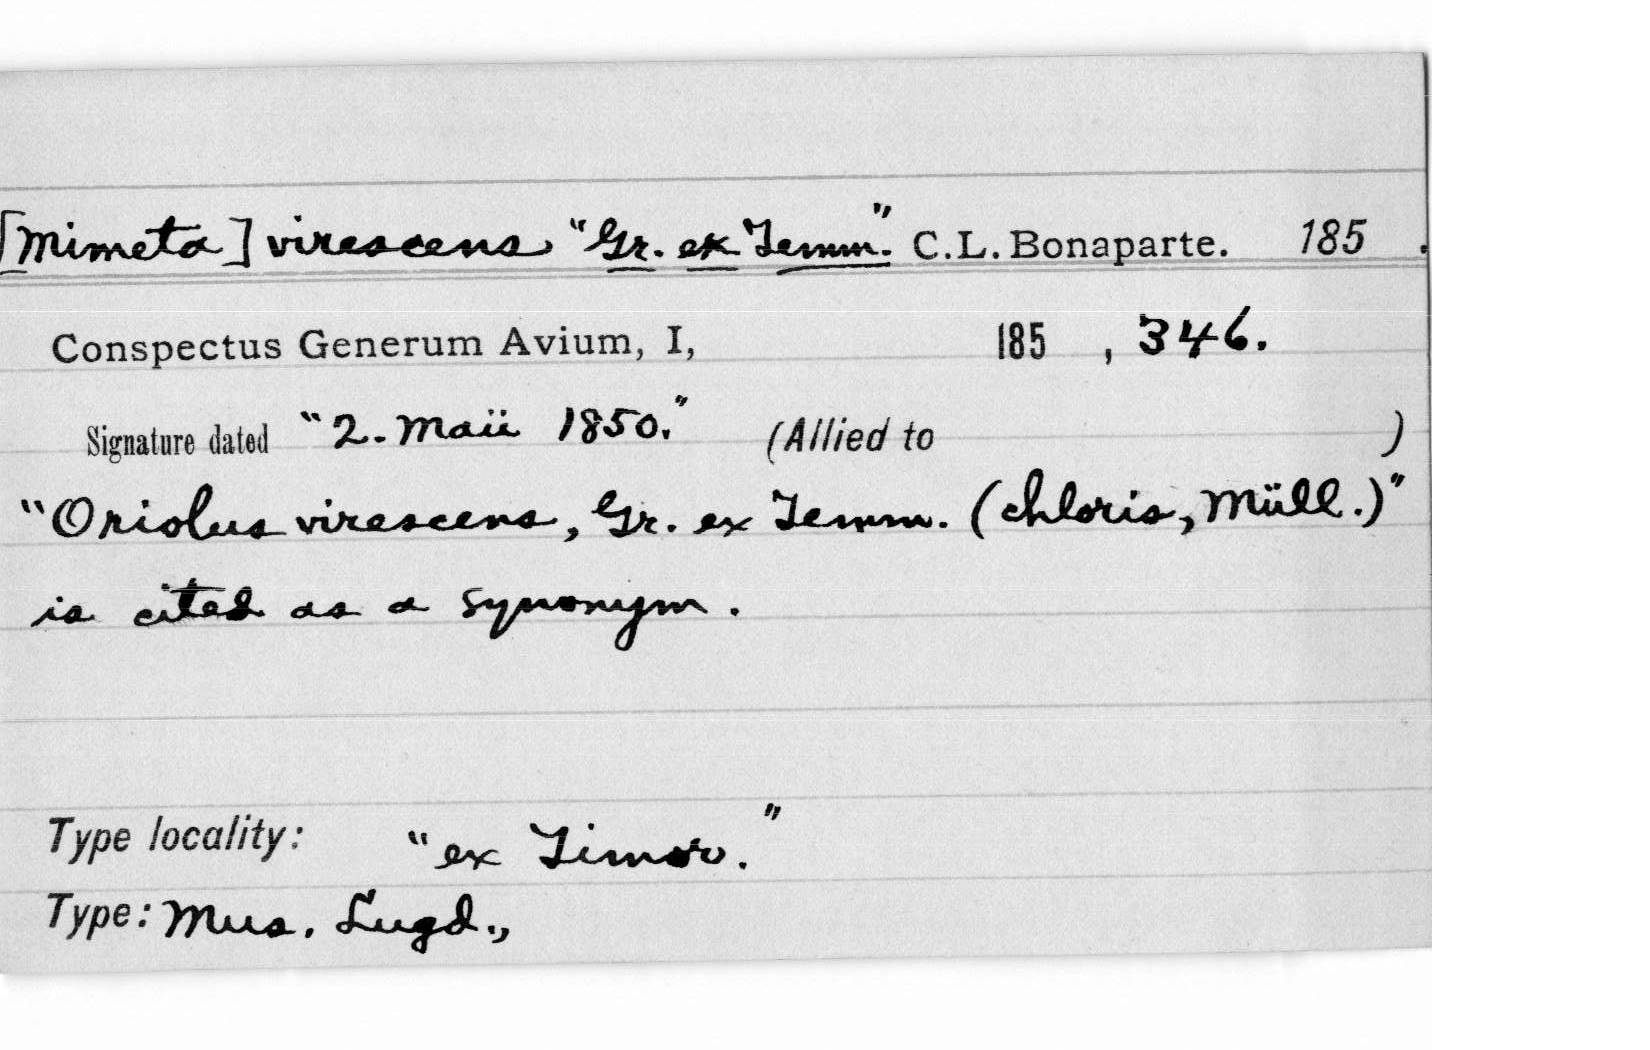 [Mimeta] virescens "Gr. ex Temm." C.L. Bonaparte. 185 .
Conspectus Generum Avium, I, 185 , 346.
Signature dated "2. Maii 1850." (Allied to )
"Oriolus virescens, Gr. ex Temm. (chloris, Müll.)"
is cited as a synonym.
Type locality: "ex Timor."
Type: Mus. Lugd.,